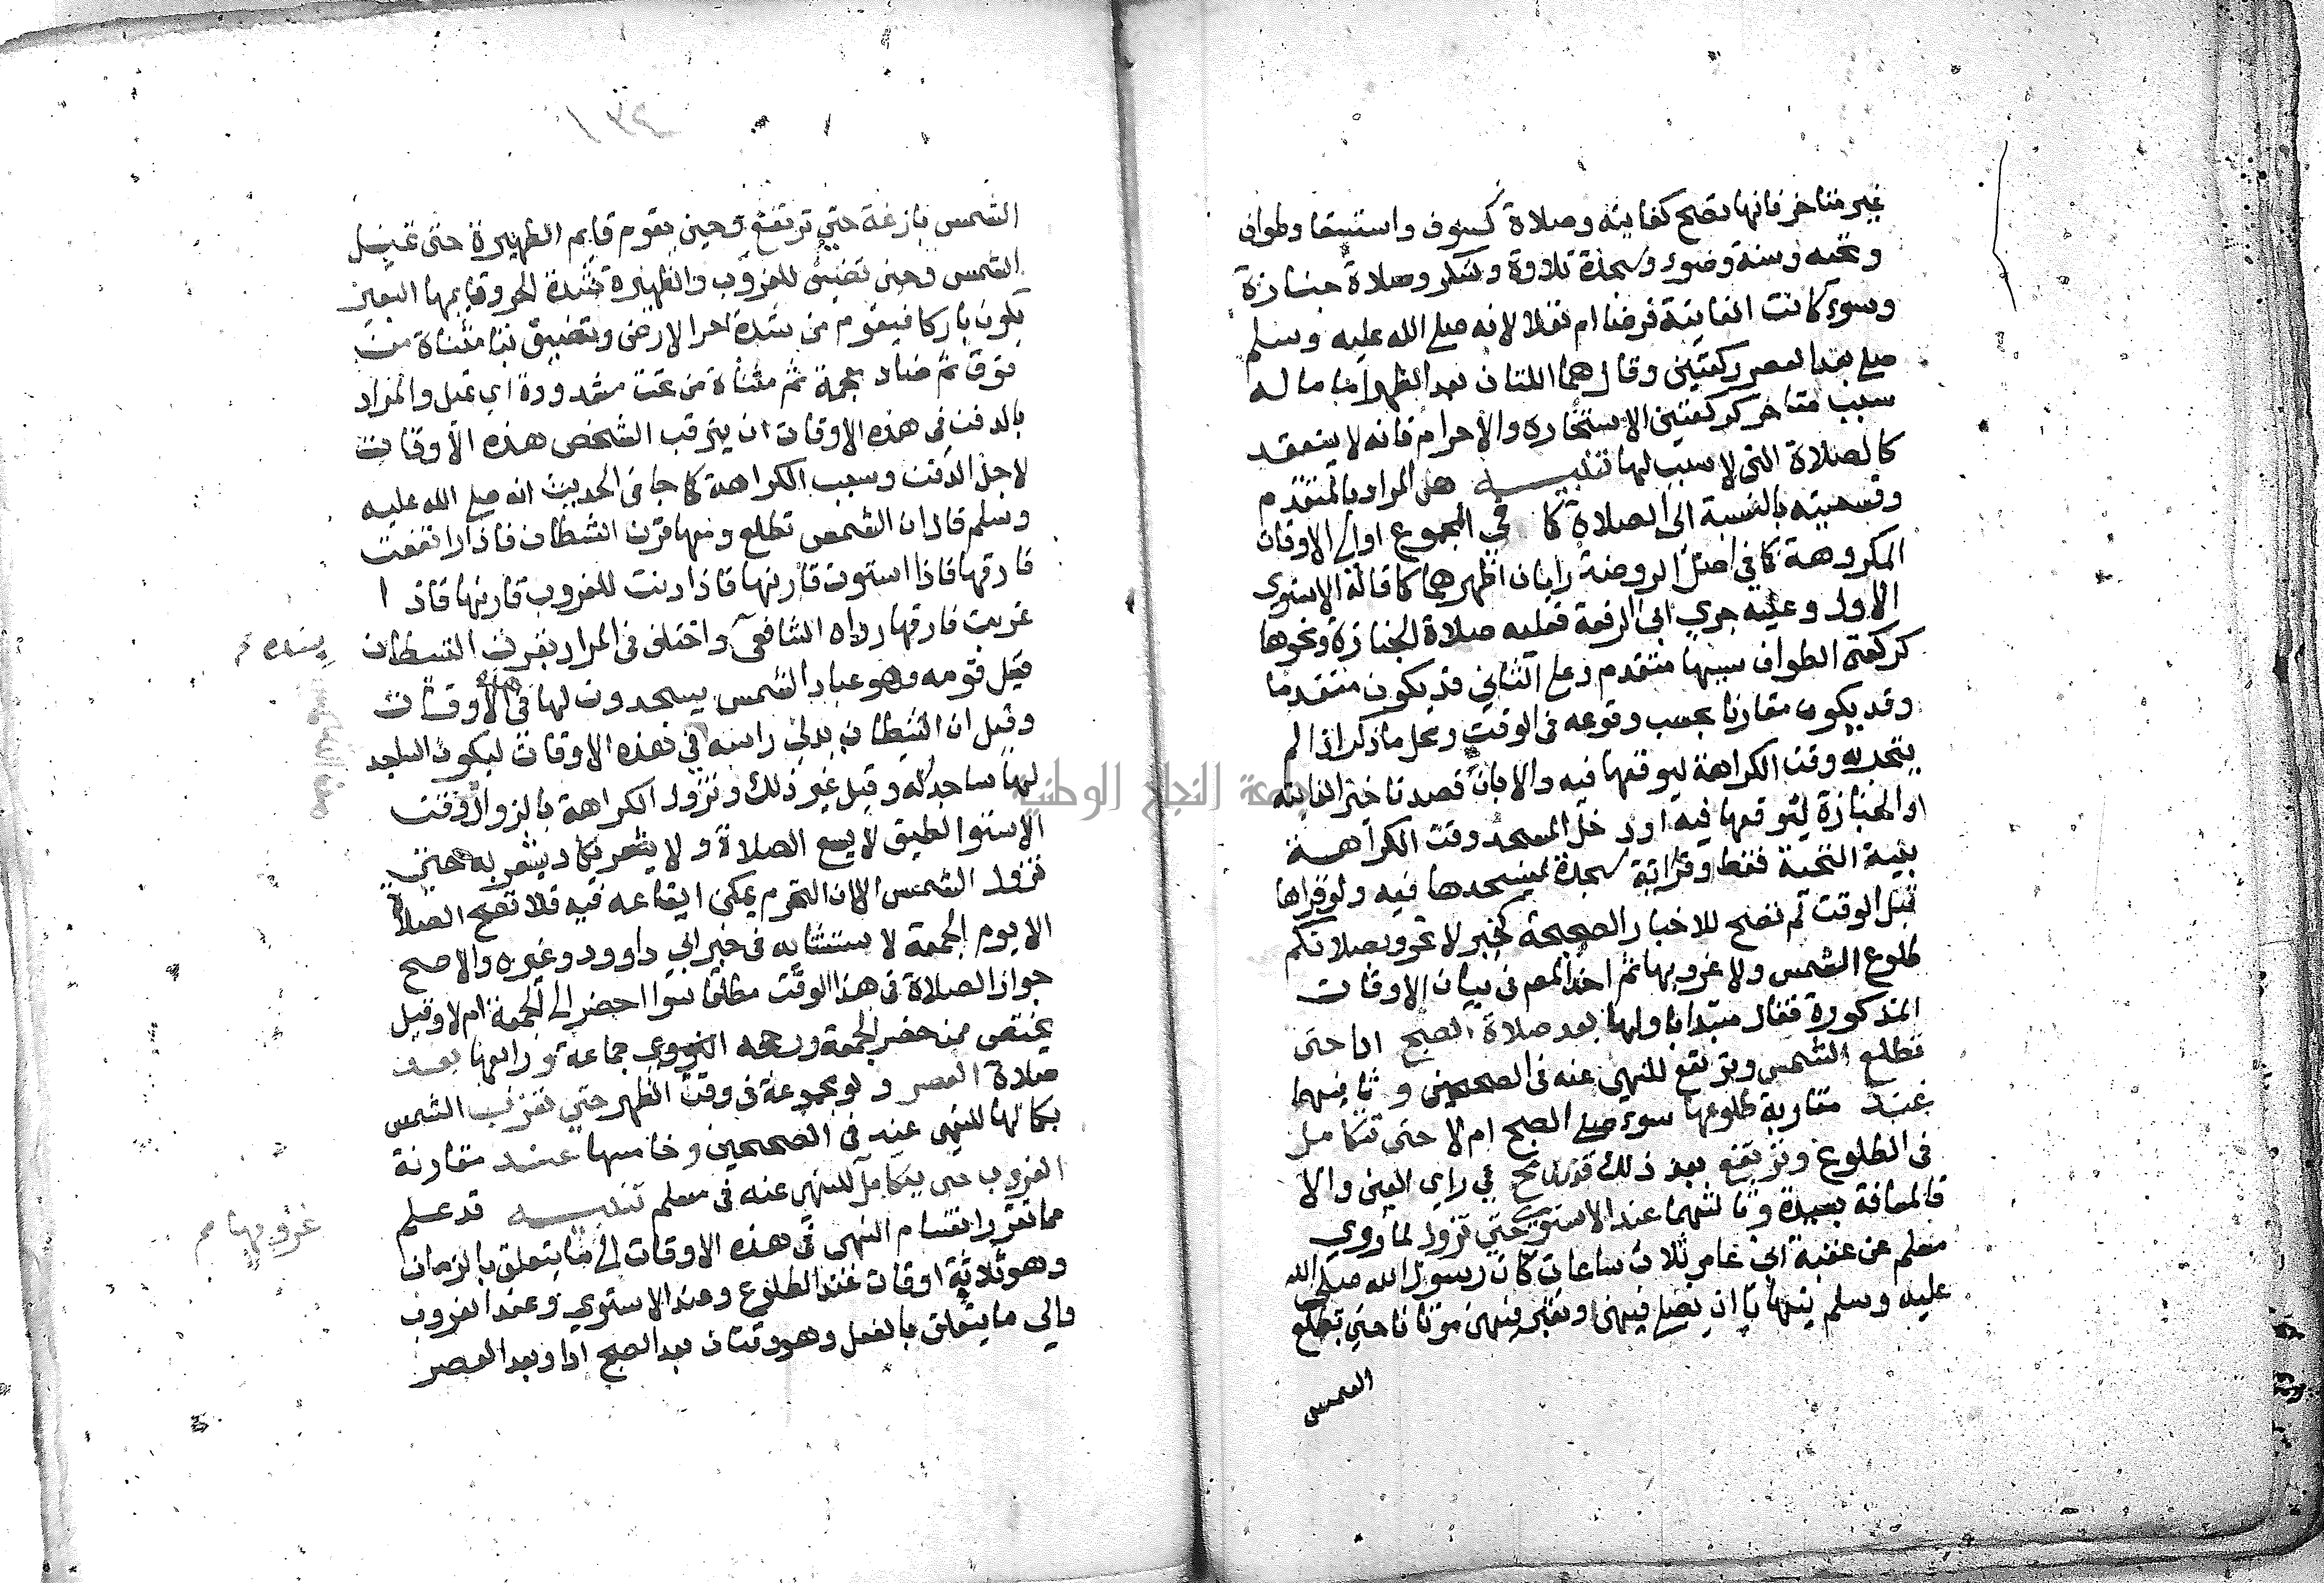 غير متاخر فانها تصح كفايتة وصلاة كسوف واستسقا وطواف
وتحيه وسنة وضوء وسجدة تلاوة وشكر وصلاة جنازة
وسوء كانت الفايتة فرضا ام نفلا لانه صلى الله عليه وسلم
صلى بعد العصر ركعتين وقال هما اللتان بعد الظهر اما ما له
سبب متاخر كركعتين الاستخاره والاحرام فانه لا ينعقد
كالصلاة التي لا سبب لها تنبيــه هل المراد بالمتقدم
وقسميته بالنسبة الى الصلاة كما في المجموع او الى الاوقات
المكروهة كما في اصل الروضة رايان اظهرهما كما قاله الاسنوي
الاول وعليه جري ابن الرفعة فعليه صلاة الجنازة ونحوها
كركعتي الطواف سببها متقدم وعلى الثاني قد يكون متقدما
وقد يكون مقارنا بحسب وقوعه في الوقت ومحل ما ذكر اذا لم
يتحر به وقت الكراهة ليوقعها فيه والا بان قصد تاخير الفايته
او الجنازة ليوقعها فيه او دخل المسجد وقت الكراهــة
بنية التحية فقط وقراية سجدة ليسجدها فيه ولو قراها
قبل الوقت لم تصح للاخبار الصحيحة كخبر لا تحروا بصلاتكم
طلوع الشمس ولا غروبها ثم اخذ المص في بيان الاوقات
المذكورة فقال مبتدا باولها بعد صلاة الصبح ادا حتى
تطلع الشمس وترتفع للنهي عنه في الصحيحين و ثانيهما
عند مقاربة طلوعها سوء صلى الصبح ام لا حتى تتكامل
في الطلوع وترتفع بعد ذلك قدر رمح في راي العين والا
فالمسافة بعيدة وثالثهما عند الاستوي حتى تزول لما روي
مسلم عن عقبة ابن عامر ثلاث ساعات كان رسول الله صلى الله
عليه وسلم ينهانا ان نصلي فيهن او نقبر فيهن موتانا حتى تطلع
الشمس
الشمس بازغة حتى ترتفع وحين يقوم قايم الظهيرة حتى تميل
الشمس وحين تضيف للغروب والظهيرة شدة الحر وقايمها البعير
يكون باركا فيقوم من شدة حر الارض وتضيف بتا مثناة من
فوق ثم ضاد معجمة ثم مثناة من تحت مشددة اي تميل والمراد
بالدفن في هذه الاوقات ان يترقب الشخص هذه الاوقات
لاجل الدفن وسبب الكراهة كما جا في الحديث انه صلى الله عليه
وسلم قال ان الشمس تطلع ومعها قرن الشطان فاذا ارتفعت
فارقها فاذا استوت قارنها فاذا دنت للغروب قارنها فاذا
غربت فارقها رواه الشافعي واختلف في المراد بقرن الشطان
قيل قومه وهو عباد الشمس يسجدون لها في هذه الاوقات
وقيل ان الشيطان يدني راسه في هذه الاوقات ليكون الساجد
لها ساجد له وقيل غير ذلك وتزول الكراهة بالزوال ووقت
الاستوا لطيف لا يسع الصلاة ولا يشعر يكاد يشعر به حتى
تزول الشمس الا ان التحرم يمكن ايقاعه فيه فلا تصح الصلاة
الا يوم الجمعة لاستثنايه في خبر ابي داوود وغيره والاصح
جواز الصلاة في هذا الوقت مطلقا سوا احضر الى الجمعة ام لا وقيل
يختص بمن حضر الجمعة ورجحه النووي جماعة ورابعها بعد
صلاة العصر ولو مجموعة في وقت الظهر حتى تغرب الشمس
بكمالها للنهي عنه في الصحيحين وخامسها عند مقارنة
الغروب حتى يتكامل للنهي عنه في مسلم تنبيــه قد علم
مما تقرر انقسام النهي في هذه الاوقات الى ما يتعلق بالزمان
وهو ثلاثة اوقات عند الطلوع وعند الاستوي وعند الغروب
والى ما يتعلق بالفعل وهو وقتان بعد الصبح ادا وبعد العصر
غروبها
جامعة النجاح الوطنية